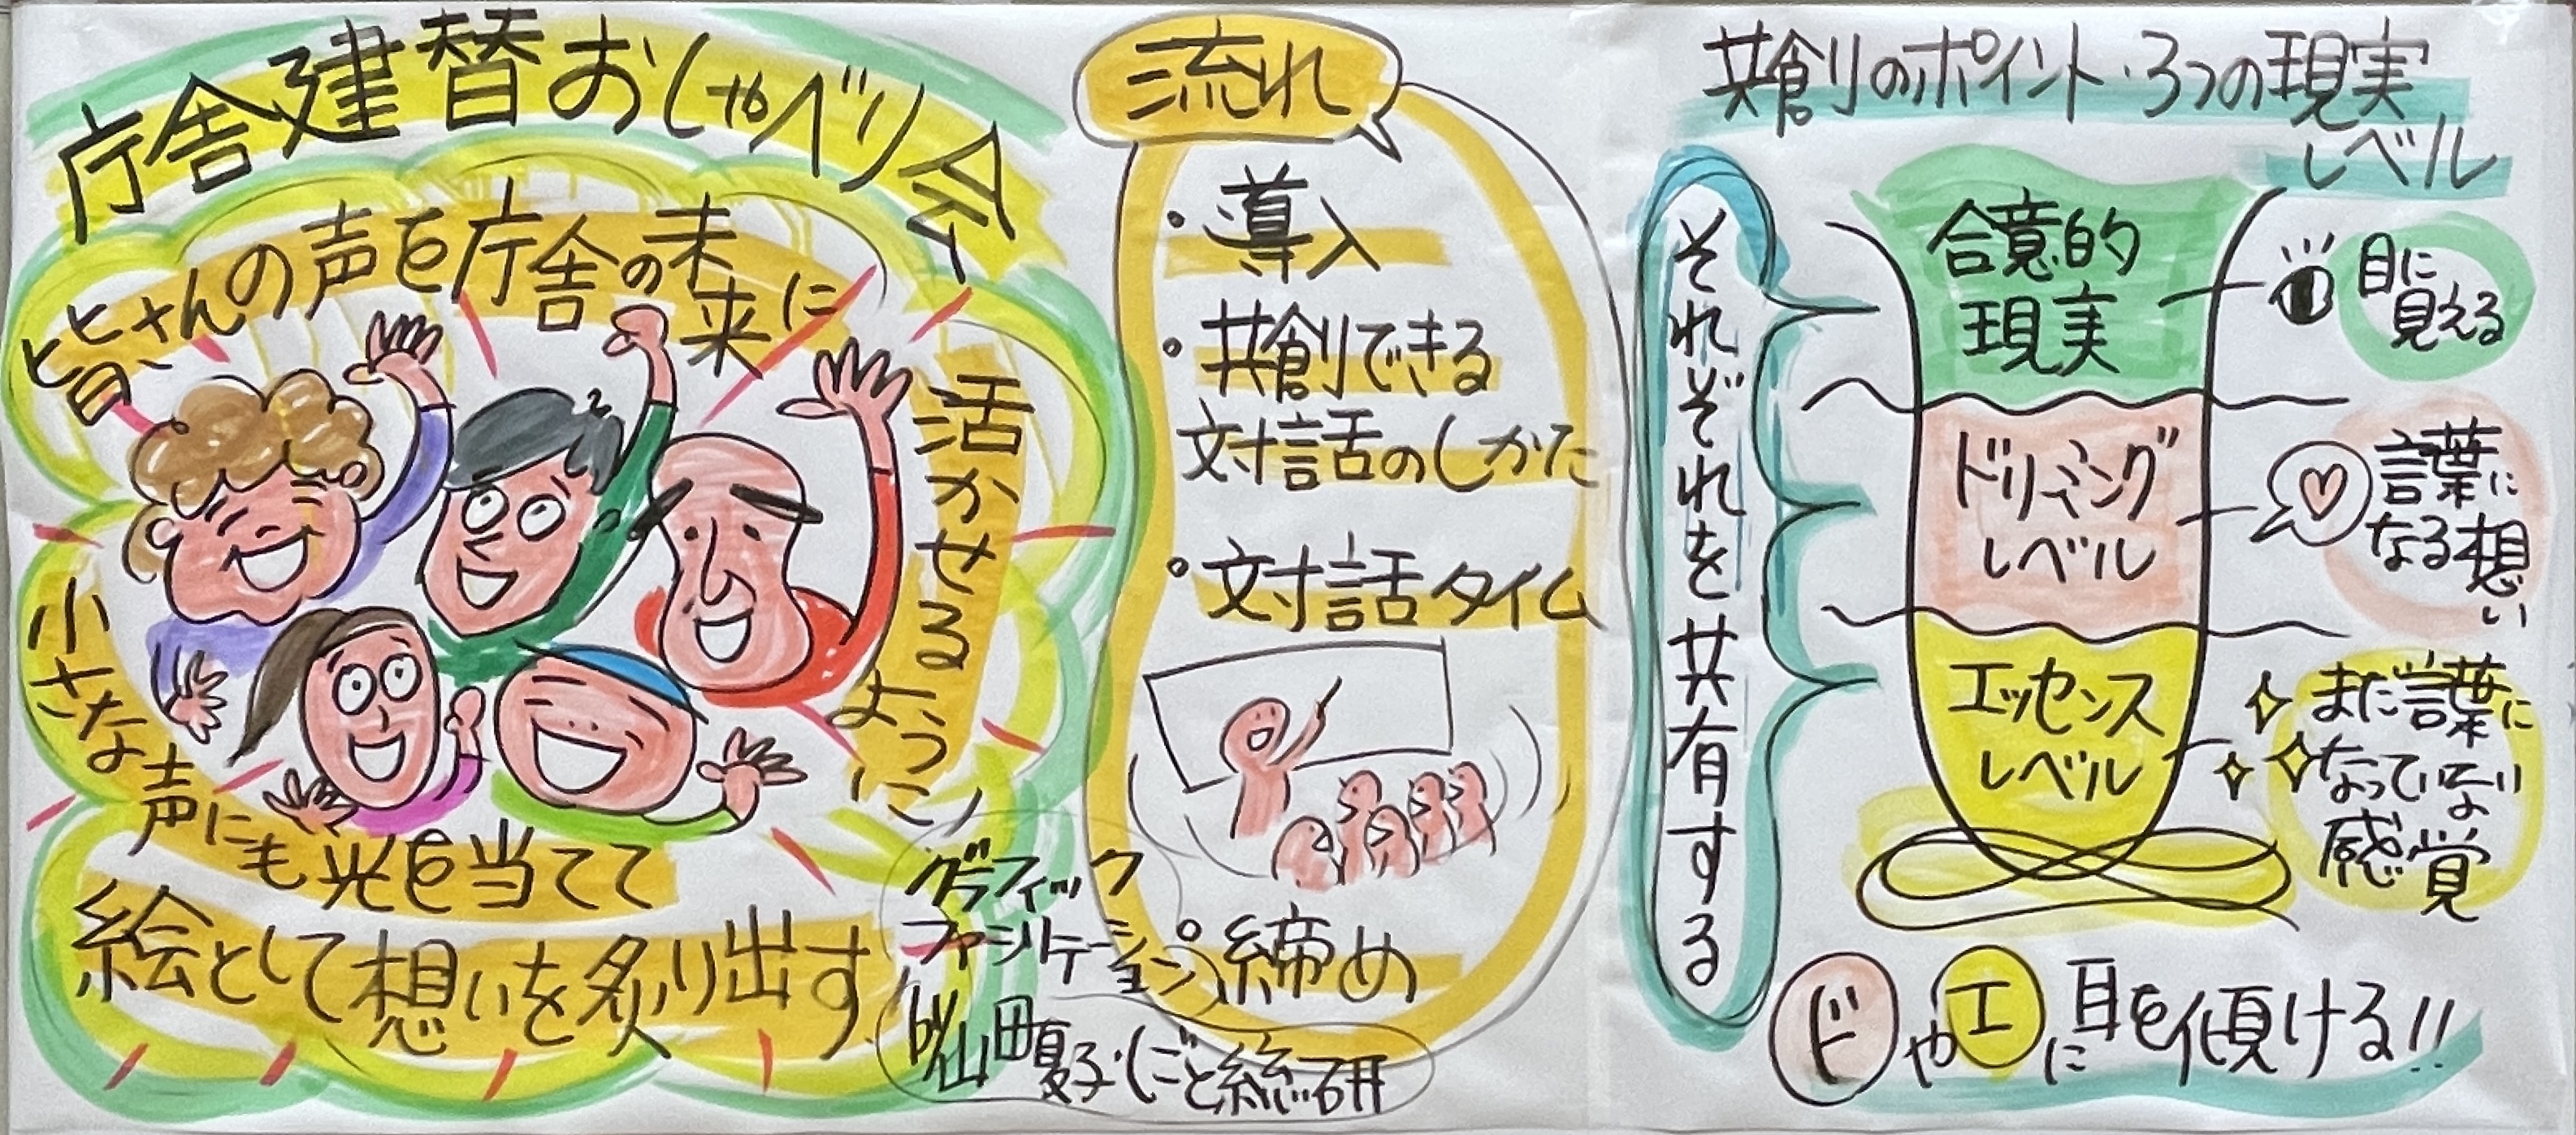 庁舎建替おしゃべり会
皆さんの声を庁舎の未来に
活かせるように
小さな声にも光を当てて
絵として想いを炙り出す
グラフィック
ファシリテーション
山田夏子・しごと総研
流れ
・導入
・共創できる
対話のしかた
・対話タイム
・締め
共創のポイント・3つの現実
レベル
それぞれを共有する
合意的
現実
目に
見える
ドリーミング
レベル
言葉に
なる想い
エッセンス
レベル
まだ言葉に
なっていない
感覚
ドやエに耳を傾ける!!